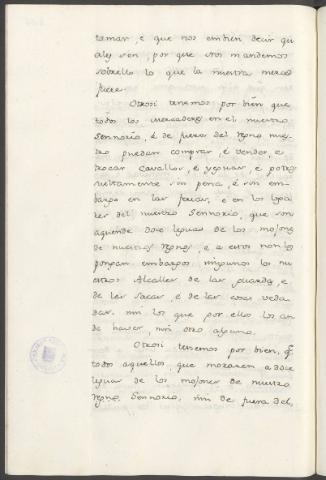 tomar, e que nos embien decir qu
ales son, por que nos mandemos
sobrello lo que la nuestra merced
fuere.
Otrosi tenemos por bien que
todos los mercaderes en el nuestro
Sennorio, é de fuera del regno nues
tro puedan comprar, é vender, e
trocar cavallos, é yeguas, e potros
sueltamente sin pena, é sin em-
bargo en las ferias, é en los logar
es del nuestro Sennorio, que son
aquende doce leguas de los mojones
de nuestros regnos, e a estos non los
pongan embargos ningunos los nu
estros Alcalles de las guardas, e
de las sacas, e de las cosas veda
das, nin los que por ello los an
de haver, nin otro alguno.
Otrosi tenemos por bien, q
todos aquellos, que moraren a doce
leguas de los mojones de nuestro
regno, Sennorio, nin de fuera del